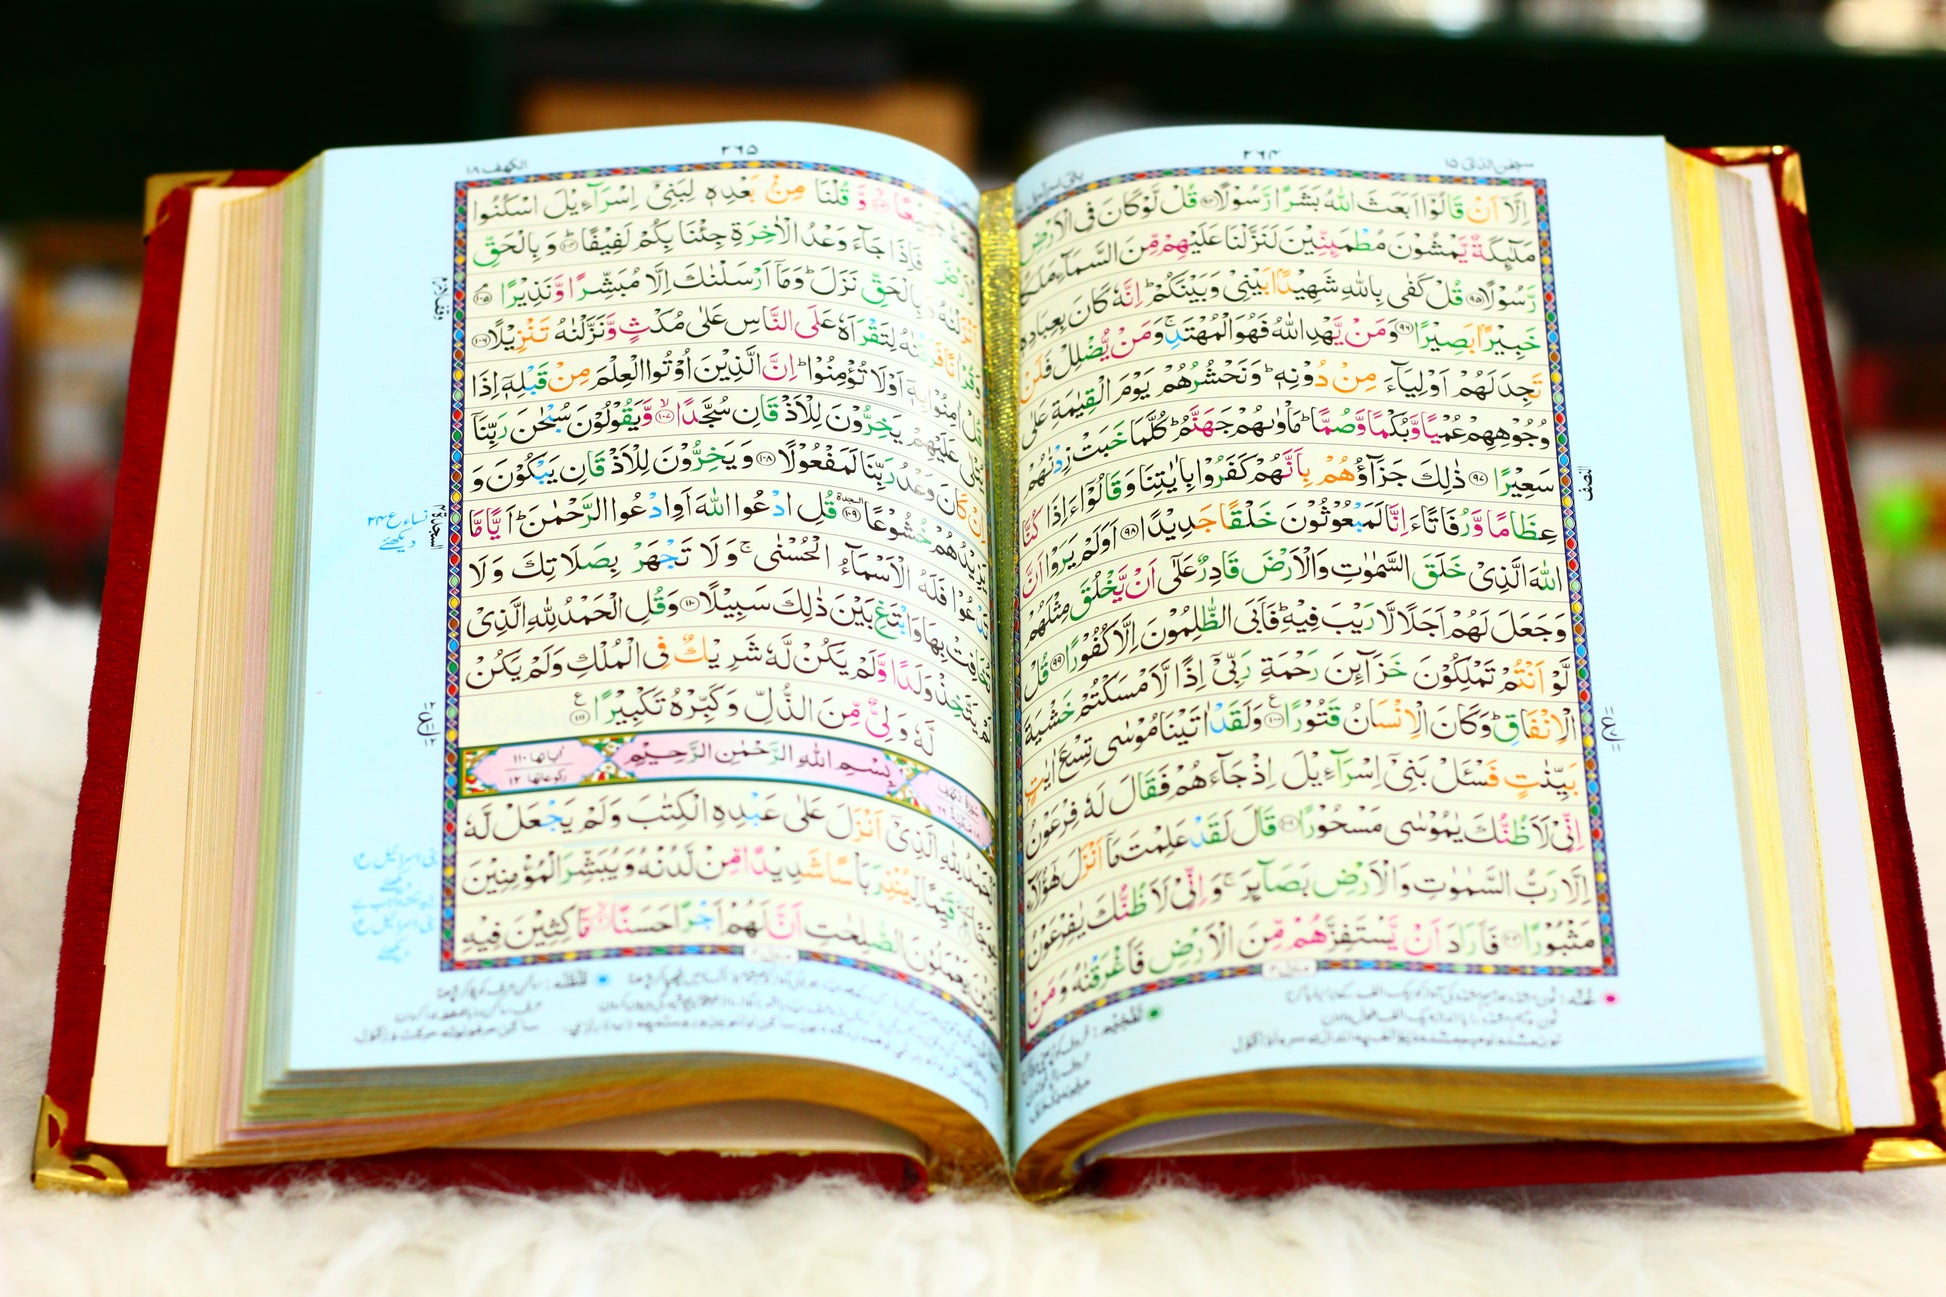 سبحٰن الذی ١٥
٢٦٤
بنی اسرآءیل
اِلَّاۤ اَنْ قَالُوْۤا اَبَعَثَ اللّٰهُ بَشَرًا رَّسُوْلًا ﴿۹۴﴾ قُلْ لَّوْ كَانَ فِی الْاَرْضِ
مَلٰٓىِٕكَةٌ یَّمْشُوْنَ مُطْمَىِٕنِّیْنَ لَنَزَّلْنَا عَلَیْهِمْ مِّنَ السَّمَآءِ مَلَكًا
رَّسُوْلًا ﴿۹۵﴾ قُلْ كَفٰی بِاللّٰهِ شَهِیْدًۢا بَیْنِیْ وَ بَیْنَكُمْ ؕ اِنَّهٗ كَانَ بِعِبَادِهٖ
خَبِیْرًۢا بَصِیْرًا ﴿۹۶﴾ وَ مَنْ یَّهْدِ اللّٰهُ فَهُوَ الْمُهْتَدِ ۚ وَ مَنْ یُّضْلِلْ فَلَنْ
تَجِدَ لَهُمْ اَوْلِیَآءَ مِنْ دُوْنِهٖ ؕ وَ نَحْشُرُهُمْ یَوْمَ الْقِیٰمَةِ عَلٰی
وُجُوْهِهِمْ عُمْیًا وَّ بُكْمًا وَّ صُمًّا ؕ مَاْوٰىهُمْ جَهَنَّمُ ؕ كُلَّمَا خَبَتْ زِدْنٰهُمْ
سَعِیْرًا ﴿۹۷﴾ ذٰلِكَ جَزَآؤُهُمْ بِاَنَّهُمْ كَفَرُوْا بِاٰیٰتِنَا وَ قَالُوْۤا ءَاِذَا كُنَّا
النصف
عِظَامًا وَّ رُفَاتًا ءَاِنَّا لَمَبْعُوْثُوْنَ خَلْقًا جَدِیْدًا ﴿۹۸﴾ اَوَ لَمْ یَرَوْا اَنَّ
اللّٰهَ الَّذِیْ خَلَقَ السَّمٰوٰتِ وَ الْاَرْضَ قَادِرٌ عَلٰۤی اَنْ یَّخْلُقَ مِثْلَهُمْ
وَ جَعَلَ لَهُمْ اَجَلًا لَّا رَیْبَ فِیْهِ ؕ فَاَبَی الظّٰلِمُوْنَ اِلَّا كُفُوْرًا ﴿۹۹﴾ قُلْ
لَّوْ اَنْتُمْ تَمْلِكُوْنَ خَزَآىِٕنَ رَحْمَةِ رَبِّیْۤ اِذًا لَّاَمْسَكْتُمْ خَشْیَةَ
الْاِنْفَاقِ ؕ وَ كَانَ الْاِنْسَانُ قَتُوْرًا ﴿۱۰۰﴾ وَ لَقَدْ اٰتَیْنَا مُوْسٰی تِسْعَ اٰیٰتٍۭ
بَیِّنٰتٍ فَسْـَٔلْ بَنِیْۤ اِسْرَآءِیْلَ اِذْ جَآءَهُمْ فَقَالَ لَهٗ فِرْعَوْنُ
اِنِّیْ لَاَظُنُّكَ یٰمُوْسٰی مَسْحُوْرًا ﴿۱۰۱﴾ قَالَ لَقَدْ عَلِمْتَ مَاۤ اَنْزَلَ هٰۤؤُلَآءِ
اِلَّا رَبُّ السَّمٰوٰتِ وَ الْاَرْضِ بَصَآىِٕرَ ۚ وَ اِنِّیْ لَاَظُنُّكَ یٰفِرْعَوْنُ
مَثْبُوْرًا ﴿۱۰۲﴾ فَاَرَادَ اَنْ یَّسْتَفِزَّهُمْ مِّنَ الْاَرْضِ فَاَغْرَقْنٰهُ وَ مَنْ
منزل ۴
الكهف ١٨
٢٦٥
مَّعَهٗ جَمِیْعًا ﴿۱۰۳﴾ وَّ قُلْنَا مِنْۢ بَعْدِهٖ لِبَنِیْۤ اِسْرَآءِیْلَ اسْكُنُوا
الْاَرْضَ فَاِذَا جَآءَ وَعْدُ الْاٰخِرَةِ جِئْنَا بِكُمْ لَفِیْفًا ﴿۱۰۴﴾ وَ بِالْحَقِّ
اَنْزَلْنٰهُ وَ بِالْحَقِّ نَزَلَ ؕ وَ مَاۤ اَرْسَلْنٰكَ اِلَّا مُبَشِّرًا وَّ نَذِیْرًا ﴿۱۰۵﴾
وَ قُرْاٰنًا فَرَقْنٰهُ لِتَقْرَاَهٗ عَلَی النَّاسِ عَلٰی مُكْثٍ وَّ نَزَّلْنٰهُ تَنْزِیْلًا ﴿۱۰۶﴾
قُلْ اٰمِنُوْا بِهٖۤ اَوْ لَا تُؤْمِنُوْا ؕ اِنَّ الَّذِیْنَ اُوْتُوا الْعِلْمَ مِنْ قَبْلِهٖۤ اِذَا
یُتْلٰی عَلَیْهِمْ یَخِرُّوْنَ لِلْاَذْقَانِ سُجَّدًا ﴿۱۰۷﴾ وَّ یَقُوْلُوْنَ سُبْحٰنَ رَبِّنَاۤ
اِنْ كَانَ وَعْدُ رَبِّنَا لَمَفْعُوْلًا ﴿۱۰۸﴾ وَ یَخِرُّوْنَ لِلْاَذْقَانِ یَبْكُوْنَ وَ
یَزِیْدُهُمْ خُشُوْعًا ﴿۱۰۹﴾ قُلِ ادْعُوا اللّٰهَ اَوِ ادْعُوا الرَّحْمٰنَ ؕ اَیًّا مَّا
تَدْعُوْا فَلَهُ الْاَسْمَآءُ الْحُسْنٰی ۚ وَ لَا تَجْهَرْ بِصَلَاتِكَ وَ لَا
تُخَافِتْ بِهَا وَ ابْتَغِ بَیْنَ ذٰلِكَ سَبِیْلًا ﴿۱۱۰﴾ وَ قُلِ الْحَمْدُ لِلّٰهِ الَّذِیْ
لَمْ یَتَّخِذْ وَلَدًا وَّ لَمْ یَكُنْ لَّهٗ شَرِیْكٌ فِی الْمُلْكِ وَ لَمْ یَكُنْ
لَّهٗ وَلِیٌّ مِّنَ الذُّلِّ وَ كَبِّرْهُ تَكْبِیْرًا ﴿۱۱۱﴾
بِسْمِ اللّٰهِ الرَّحْمٰنِ الرَّحِیْمِ
اٰیاتها ١١٠
ركوعاتها ١٢
الْحَمْدُ لِلّٰهِ الَّذِیْۤ اَنْزَلَ عَلٰی عَبْدِهِ الْكِتٰبَ وَ لَمْ یَجْعَلْ لَّهٗ
عِوَجًا قَیِّمًا لِّیُنْذِرَ بَاْسًا شَدِیْدًا مِّنْ لَّدُنْهُ وَ یُبَشِّرَ الْمُؤْمِنِیْنَ
الَّذِیْنَ یَعْمَلُوْنَ الصّٰلِحٰتِ اَنَّ لَهُمْ اَجْرًا حَسَنًا ﴿۲﴾ مَّاكِثِیْنَ فِیْهِ
منزل ۴